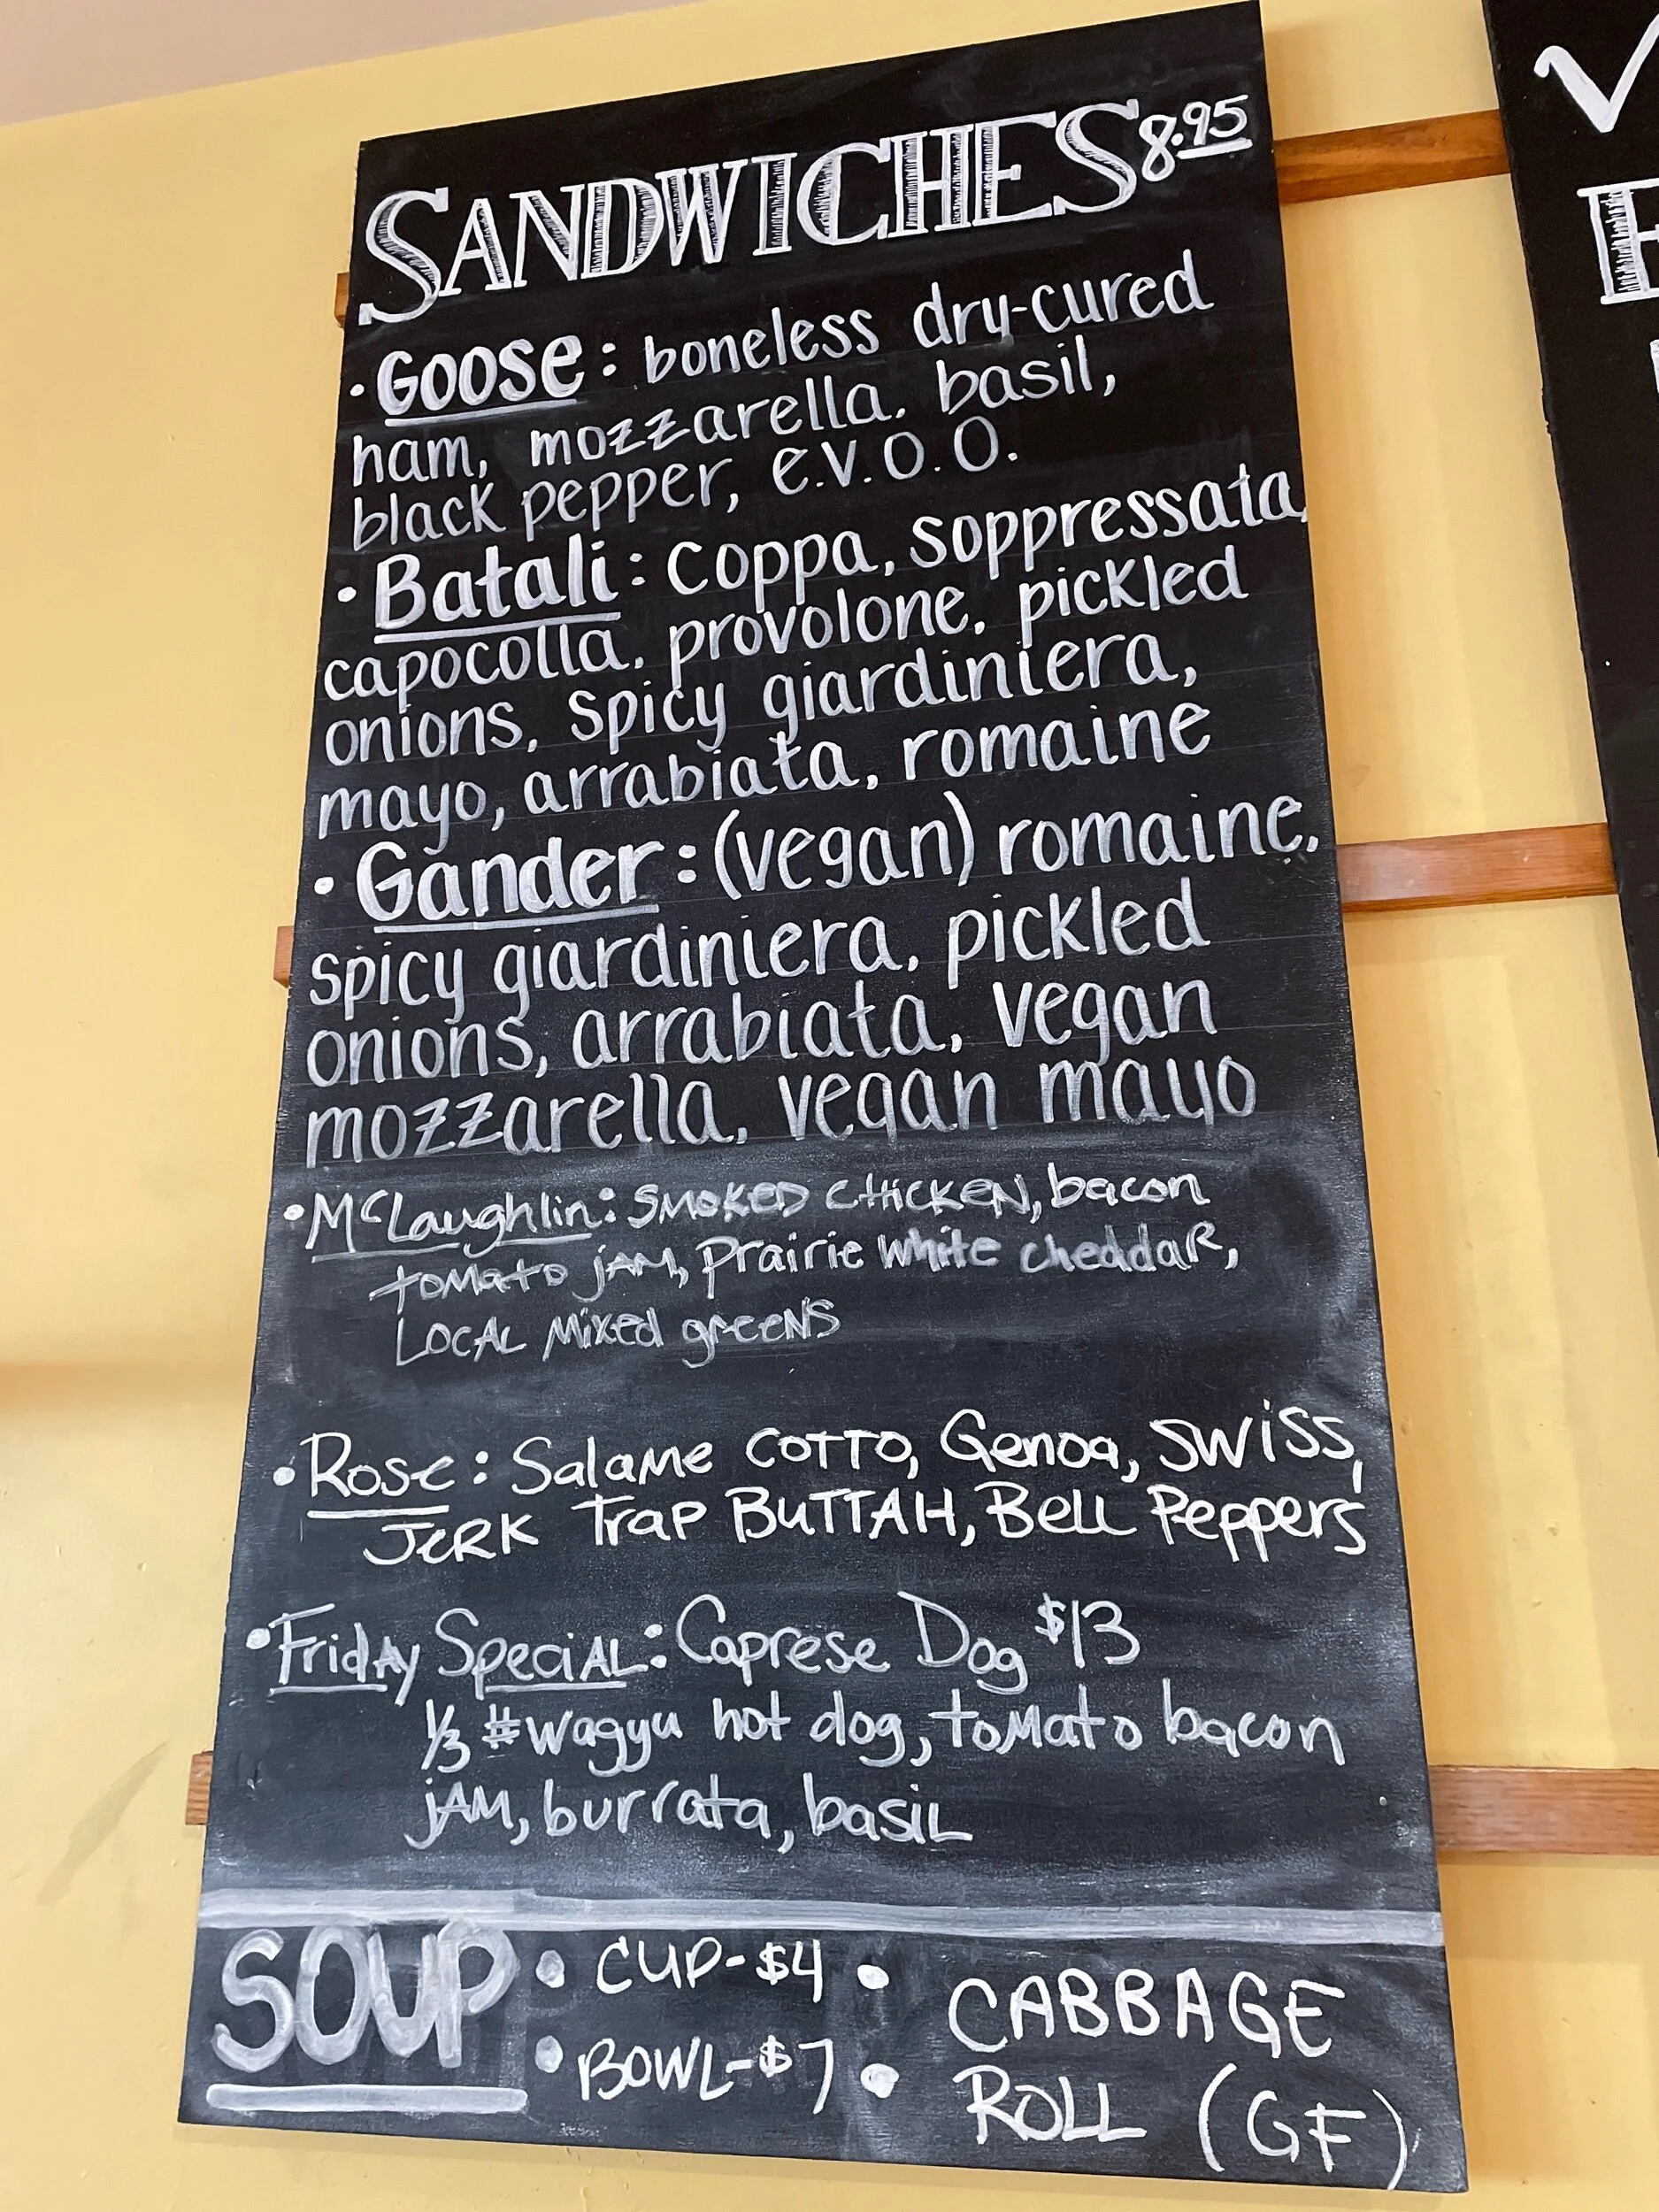 SANDWICHES 8.95
• Goose: boneless dry-cured
ham, mozzarella, basil,
black pepper, e.v.o.o.
• Batali: coppa, soppressata,
capocolla, provolone, pickled
onions, spicy giardiniera,
mayo, arrabiata, romaine
• Gander: (vegan) romaine,
spicy giardiniera, pickled
onions, arrabiata, vegan
mozzarella, vegan mayo
• McLaughlin: SMOKED CHICKEN, bacon
tomato jAM, prairie white cheddaR,
LOCAL Mixed greeNS
• Rose: Salame COTTO, Genoa, SWiSS,
JERK Trap BUTTAH, BeLL Peppers
• Friday SpeciAL: Caprese Dog $13
1/3 # wagyu hot dog, toMato bacon
jAM, burrata, basiL
SOUP • CUP-$4 • CABBAGE
• BOWL-$7 • ROLL (GF)